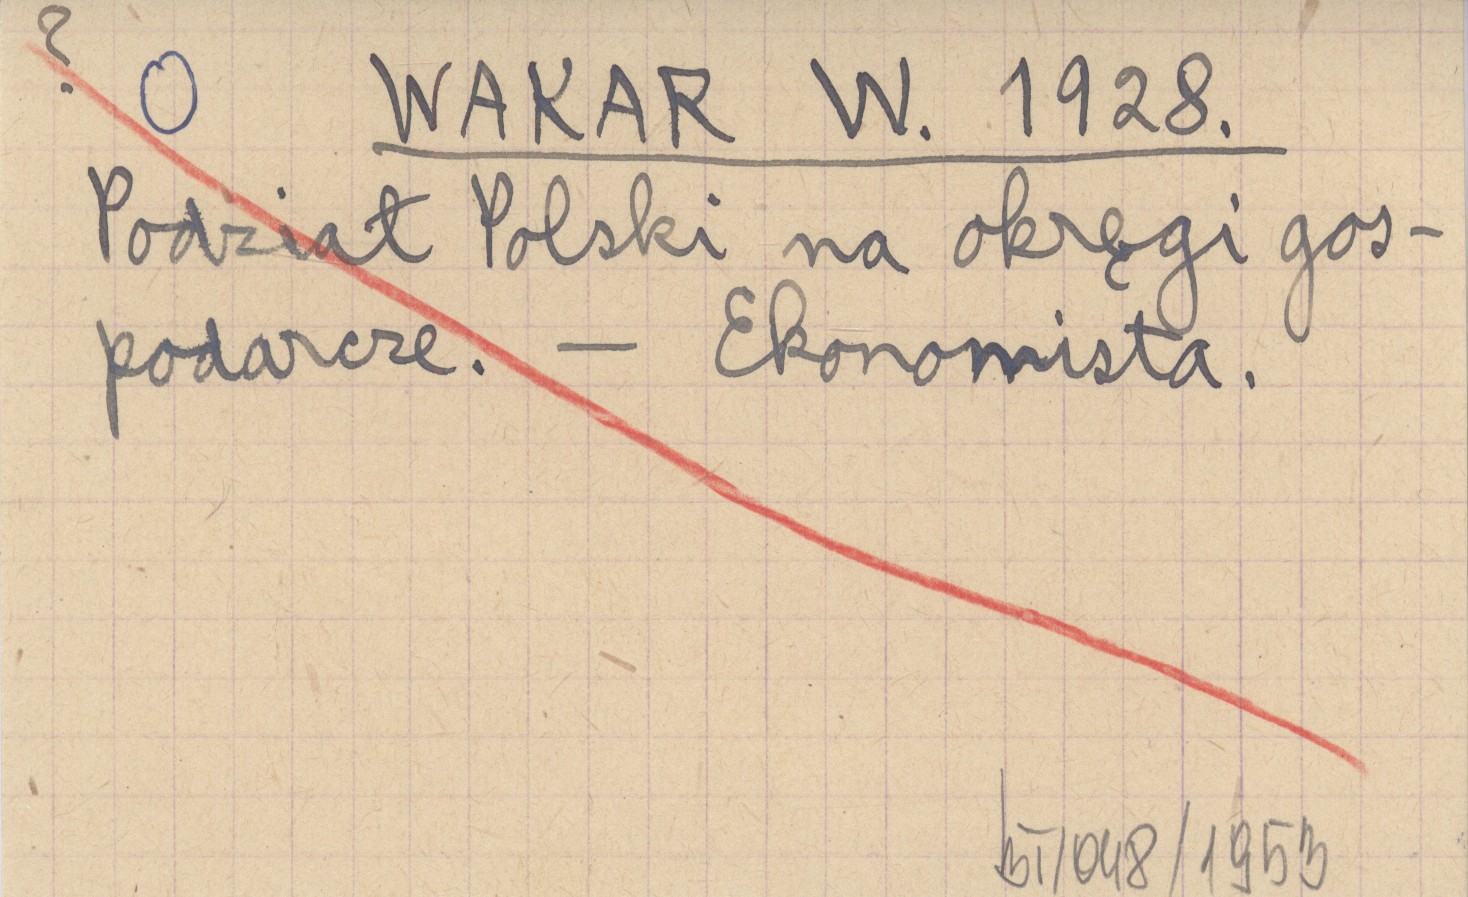 ? O WAKAR W. 1928.
Podział Polski na okręgi gos-
podarcze. — Ekonomista.
/048/1953